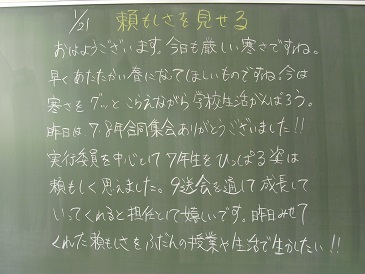 1/21 頼もしさを見せる
おはようございます。今日も厳しい寒さですね。
早くあたたかい春になってほしいものですね。今は
寒さをグッとこらえながら学校生活がんばろう。
昨日は7・8年合同集会ありがとうございました!!
実行委員を中心として7年生をひっぱる姿は
頼もしく思えました。9送会を通して成長して
いってくれると担任として嬉しいです。昨日みせて
くれた頼もしさをふだんの授業や生活で生かしたい!!